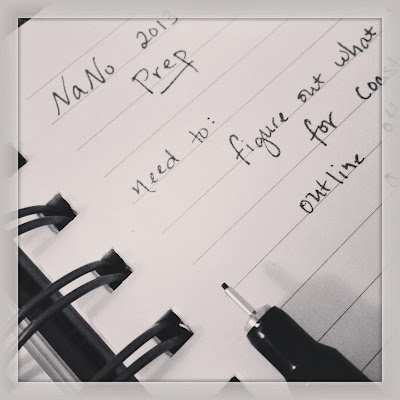 NaNo 2013
Prep
need to:
figure out what
for
outline